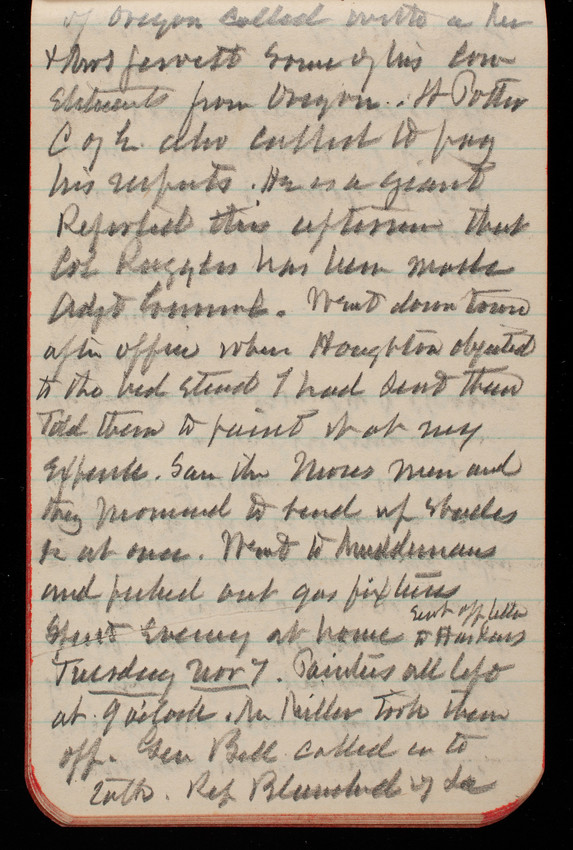 of Oregon called with a Mr
& Mrs Jewett some of his con
stituents from Oregon. H Potter
C of E. also called to pay
his respects. He is a giant
Reported this afternoon that
Col Ruggles has been made
Adjt General. Went down town
after office when Houghton objected
to the bed stead I had sent them
Told them to paint it at my
expense. Saw the Moses men and
they promised to send up shades
& at once. Went to Muddemans
and picked out gas fixtures
Spent Evening at home Sent off letter
to Haskins
Tuesday Nov 7. Painters all left
at 9 o'clock. Mr Miller took them
off. Gen Bell called in to
talk. Rep Blanchard of La